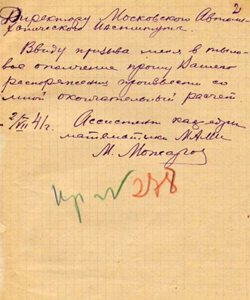 2
Директору Московского Автоме-
ханического Института.
Ввиду призыва меня в
ополчение прошу Вашего
распоряжения произвести со
мной окончательный расчет
2/VII 41 г. Ассистент кафедры
математики МАМИ
М.
пр №278